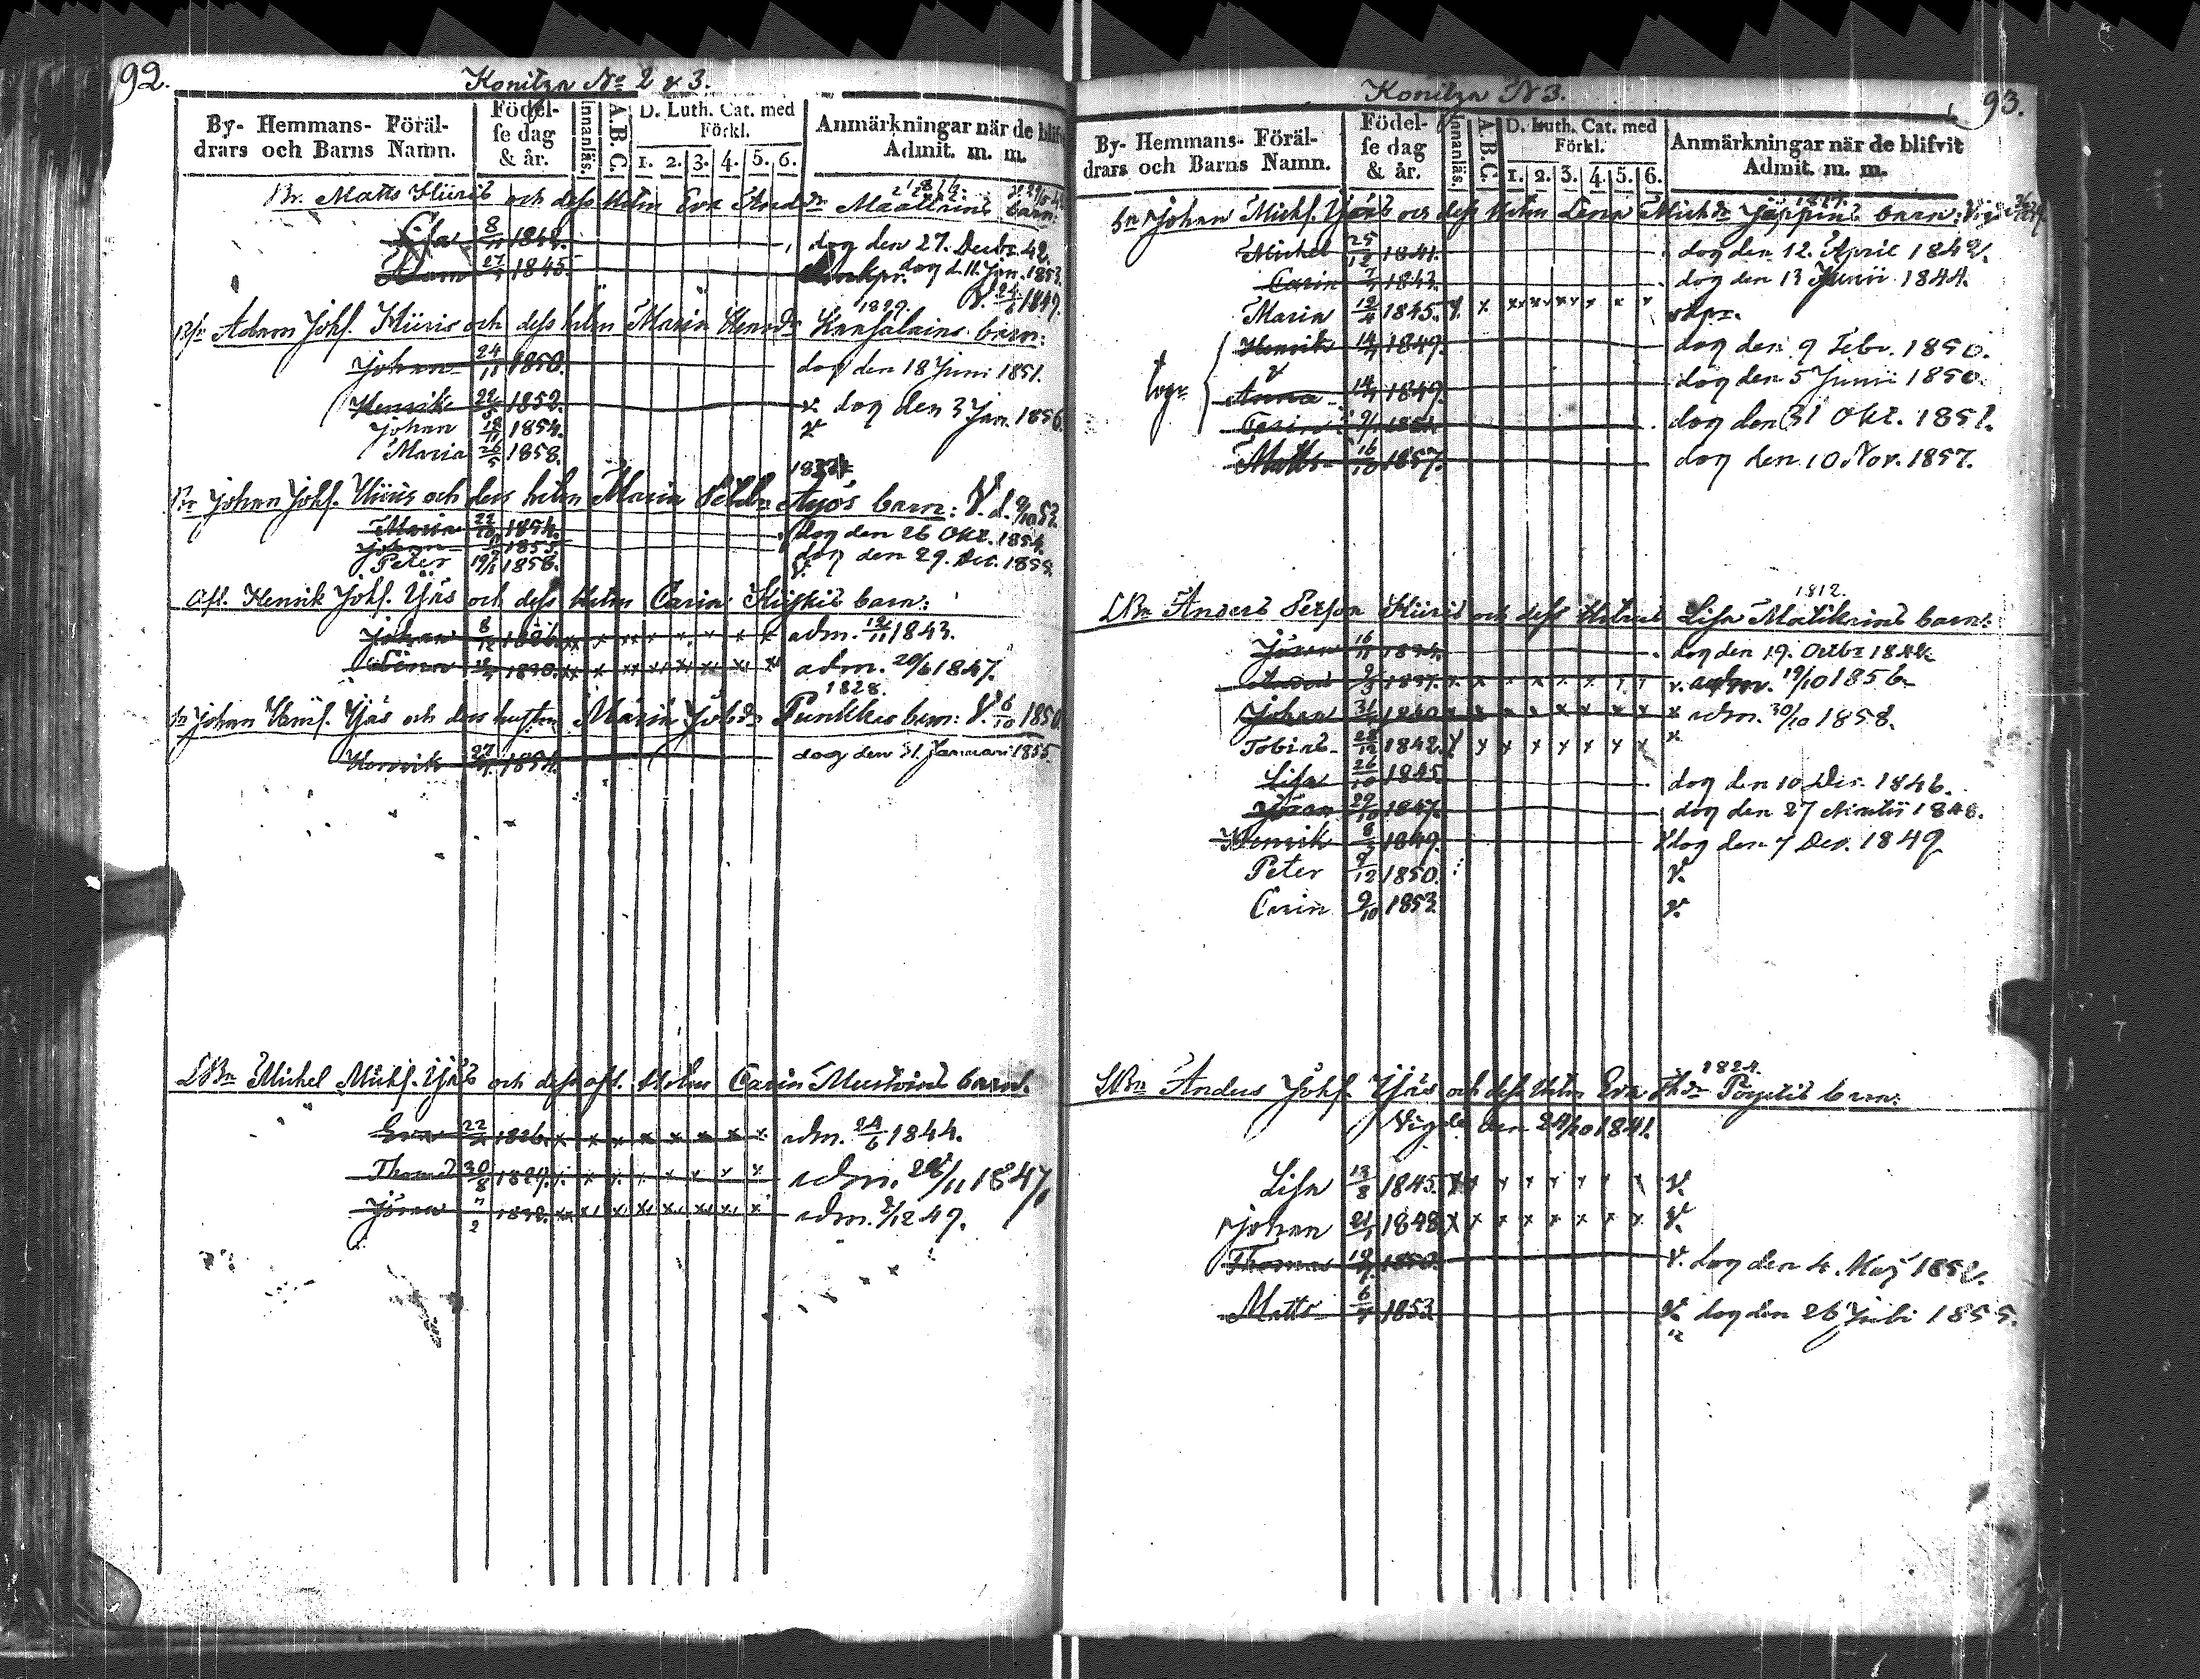 92.
Konitza No 2 & 3.
By- Hemmans- Föräl-
drars och Barns Namn.
Födel-
se dag
& år.
Innanläs.
A. B. C.
D. Luth. Cat. med
Förkl.
1. 2. 3. 4. 5. 6.
Anmärkningar när de blifv
Admit. m. m.
Br. Matts Kiiris och dess Hstru Eva barn:
Lisa 8/11 1842. dog den 27. Decbr. 42.
Adam 27/ 1845. dog d. 11. Jan. 1853.
1829. V. 24/6 1849.
Adam Johs. Kiiris och dess hstru Maria Henrsdr Kansalains barn:
Johan 24/11 1850. dog den 18 Juni 1851.
Henrik 22/5 1852. v. dog den 3 Jan. 1856.
Johan 18/11 1854. v
Maria 26/5 1858.
Br Johan Johs. Kiiris och dess hstru Maria Äyös barn: V. d. 9/10 53.
Maria 22/10 1854. dog den 26 Okt. 1854.
Johan 1855. dog den 29. Dec. 1855.
Peter 19/ 1858. v.
Afl. Henrik Johs. Yjäs och dess Hstru Carin barn:
Johan 8/12 1826. x x x x x x x x adm. 12/11 1843.
1830. x x xx xx xx xx xx x adm. 20/6 1847.
1828.
Johan Yjäs och dess hustru Maria Punkkis barn: V. 6/10 1850
Henrik 27/ 1854. dog den 31. Januari 1855.
LBr Michel Michs. Yjäs och dess afl. Hstru Carin barn.
Eva 22/ 1826. x x x x x x x x adm. 24/6 1844.
Thomas 30/8 1829. x x x x x x x x adm. 28/11 1847.
Jöran 7/2 1832. xx xx xx xx xx xx xx x adm. 2/12 49.
93.
Konitza N 3.
By- Hemmans- Föräl-
drars och Barns Namn.
Födel-
se dag
& år.
Innanläs.
A. B. C.
D. Luth. Cat. med
Förkl.
1. 2. 3. 4. 5. 6.
Anmärkningar när de blifvit
Admit. m. m.
Johan Michs. Yjäs och dess Hstru Lena Michsdr Jäppins barn:
Michel 25/12 1841. dog den 12. April 1842.
Carin 7/ 1843. dog den 13 Junii 1844.
Maria 12/4 1845. x x xx xx xx x x x
Henrik 14/ 1849. dog den 9 Febr. 1850.
Anna 14/ 1849. dog den 5 Junii 1850.
Carin 9/ 1851. dog den 31 Okt. 1851.
Matts 16/10 1857. dog den 10 Nov. 1857.
1812.
LBr Anders Persson Kiiris och dess Hstrus Lisa barn:
Jöran 16/11 1834. dog den 19. Octbr 1844.
Anders 9/3 1837. x x x x x x x x v. adm. 19/10 1856.
Johan 31/ 1840. x x x x x x x x x adm. 30/10 1858.
Tobias 28/12 1842. x x x x x x x x
Lisa 26/10 1845. dog den 10 Dec. 1846.
Jöran 29/10 1847. dog den 27 Martii 1848.
Henrik 8/ 1849. dog den 7 Dec. 1849.
Peter 9/12 1850. v.
Carin 9/10 1853. v.
1824.
LBr Anders Johs. Yjäs och dess Hstru Eva barn:
Vigde den 24/10 1841.
Lisa 13/8 1845. x x x x x x x x v.
Johan 21/ 1848. x x x x x x x x v.
Thomas 19/ 1850. v. dog den 4. Maj 1852.
Matts 6/ 1853. v. dog den 26 Juli 1855.